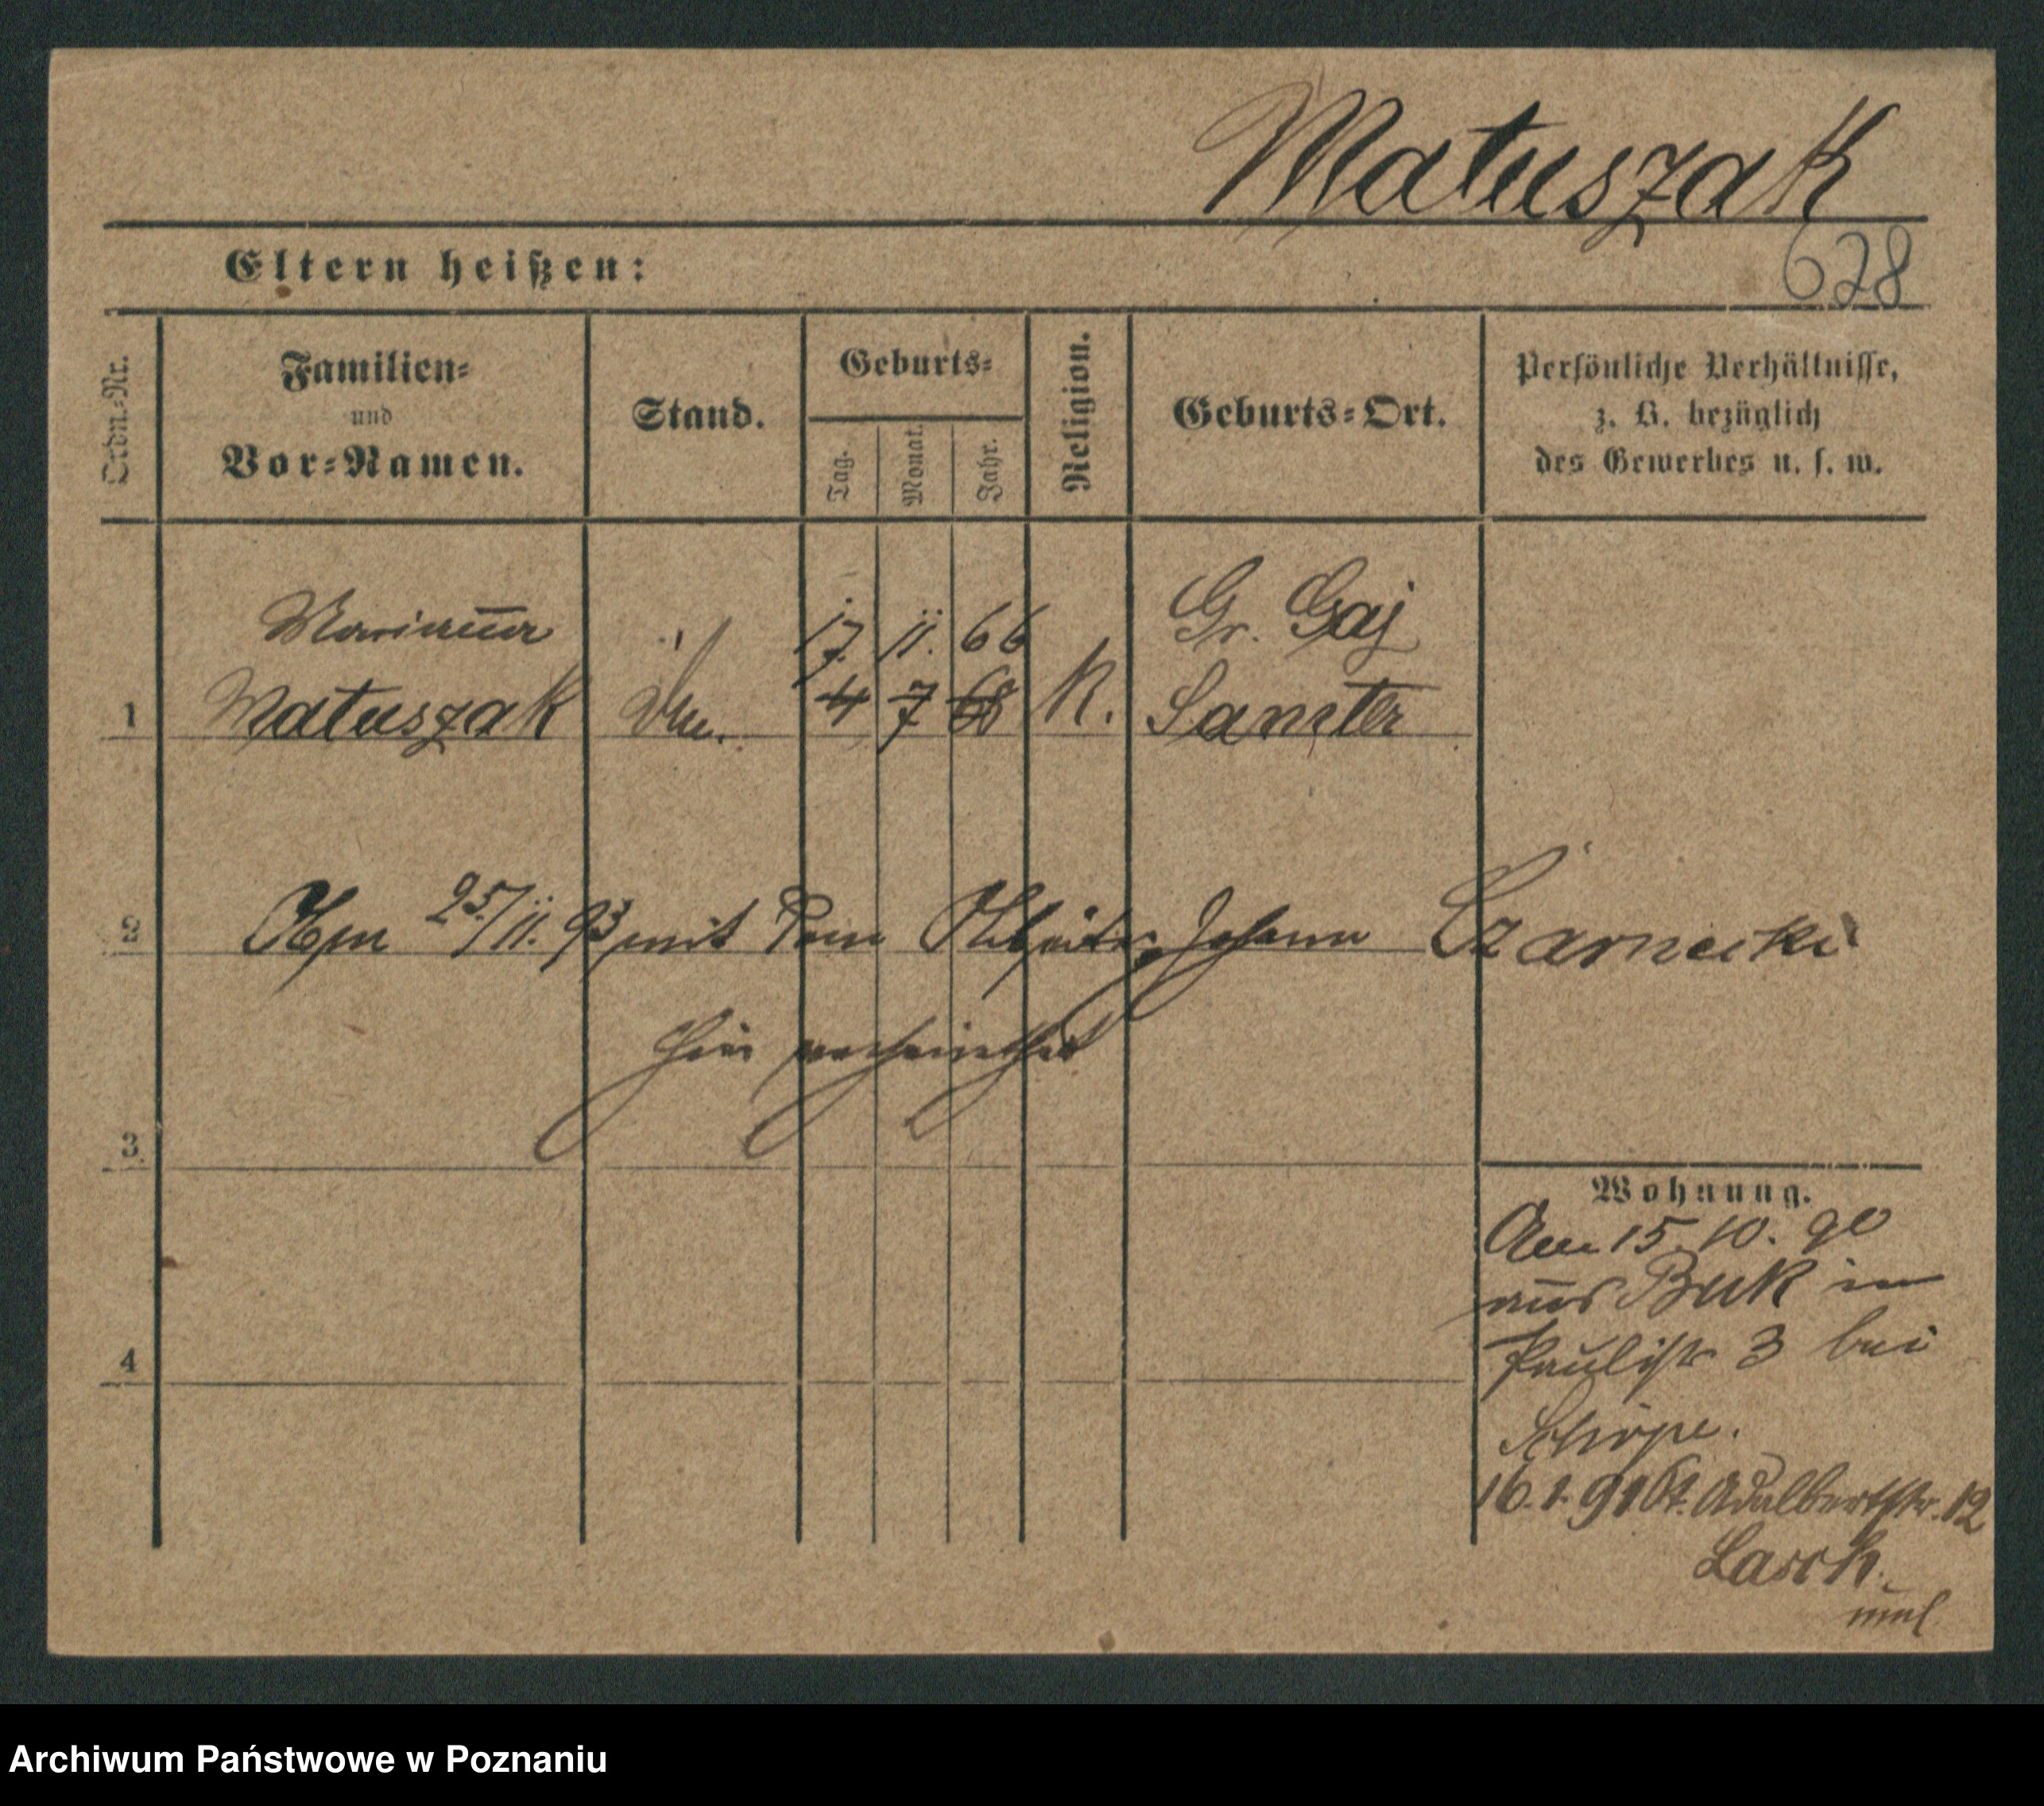 Matuszak
628
Eltern heißen:
Ordn.-Nr.
Familien-
und
Vor-Namen.
Stand.
Geburts-
Tag.
Monat.
Jahr.
Religion.
Geburts-Ort.
Persönliche Verhältnisse,
z. B. bezüglich
des Gewerbes u. s. w.
Marianna
17. 11. 66
Gr. Gaj
1 Matuszak 4 7 68 K. Samter
2 25/11. 93 mit dem Arbeiter Johann Czarnecki
hier verheirathet
3
4
Wohnung.
Am 15. 10. 90
aus Buk in
Paulistr 3 bei
Schöpe.
16.1.91 St. Adalbertstr. 12
Lasch.
Archiwum Państwowe w Poznaniu